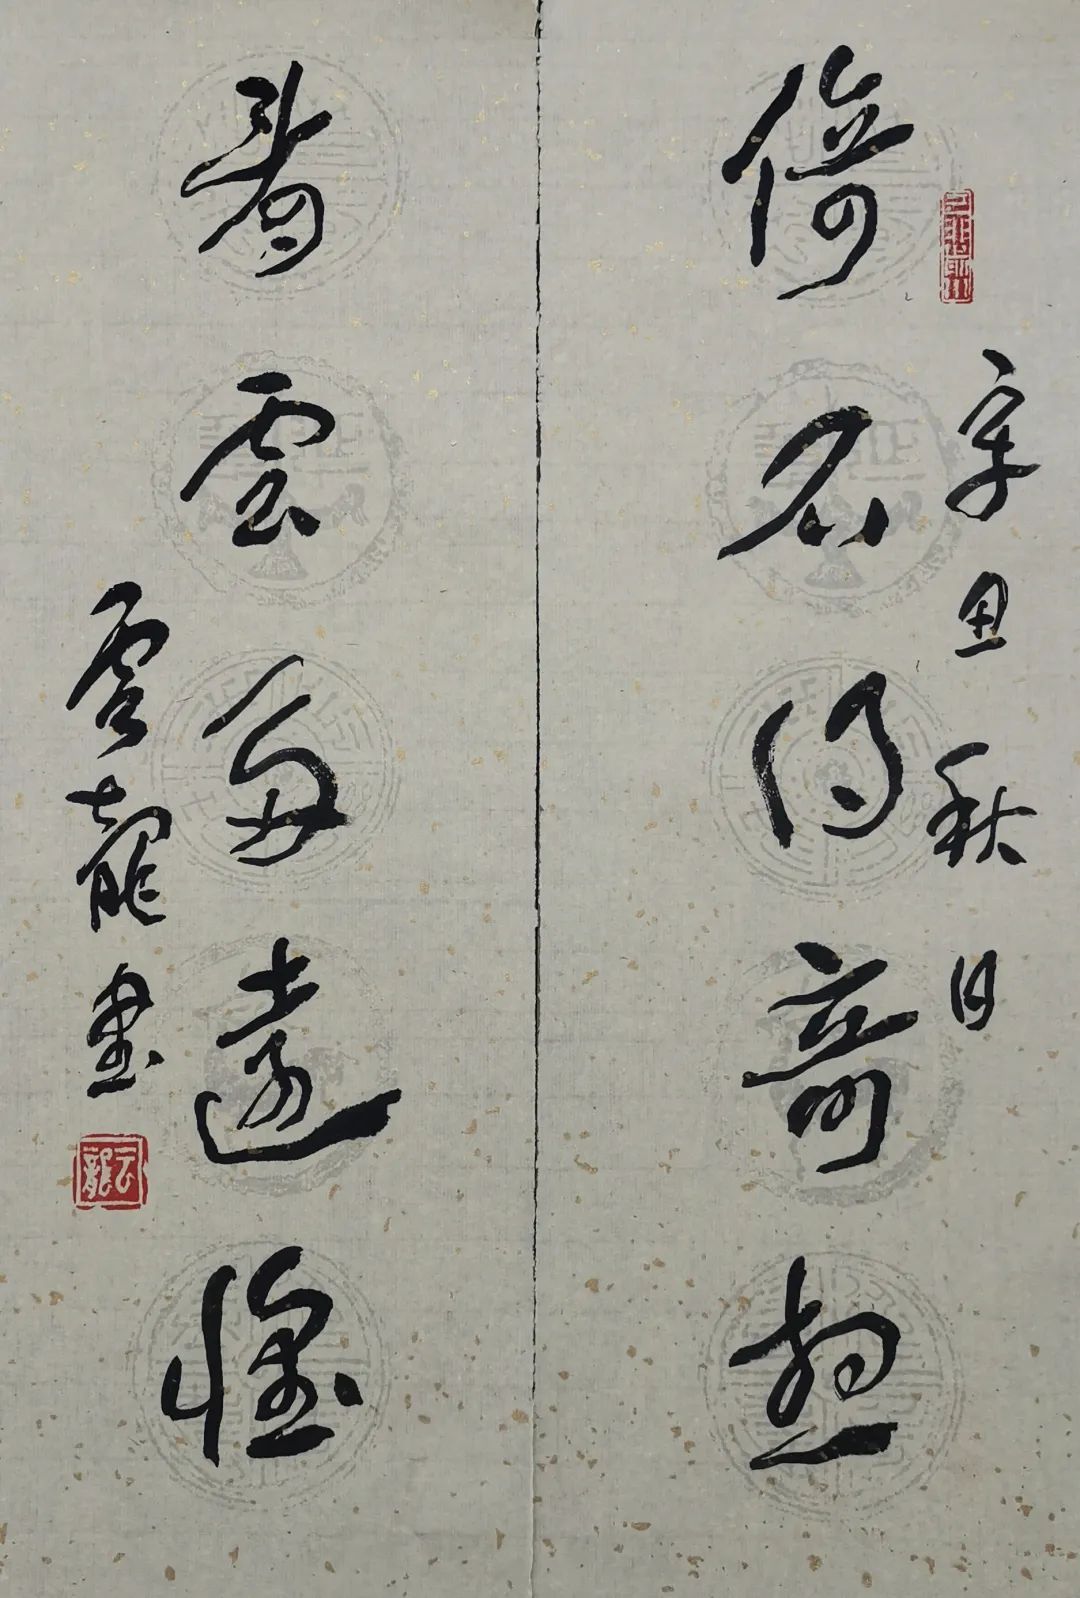 倚石得奇想
辛丑秋日
看雲多遠懷
雲龍書
云龍